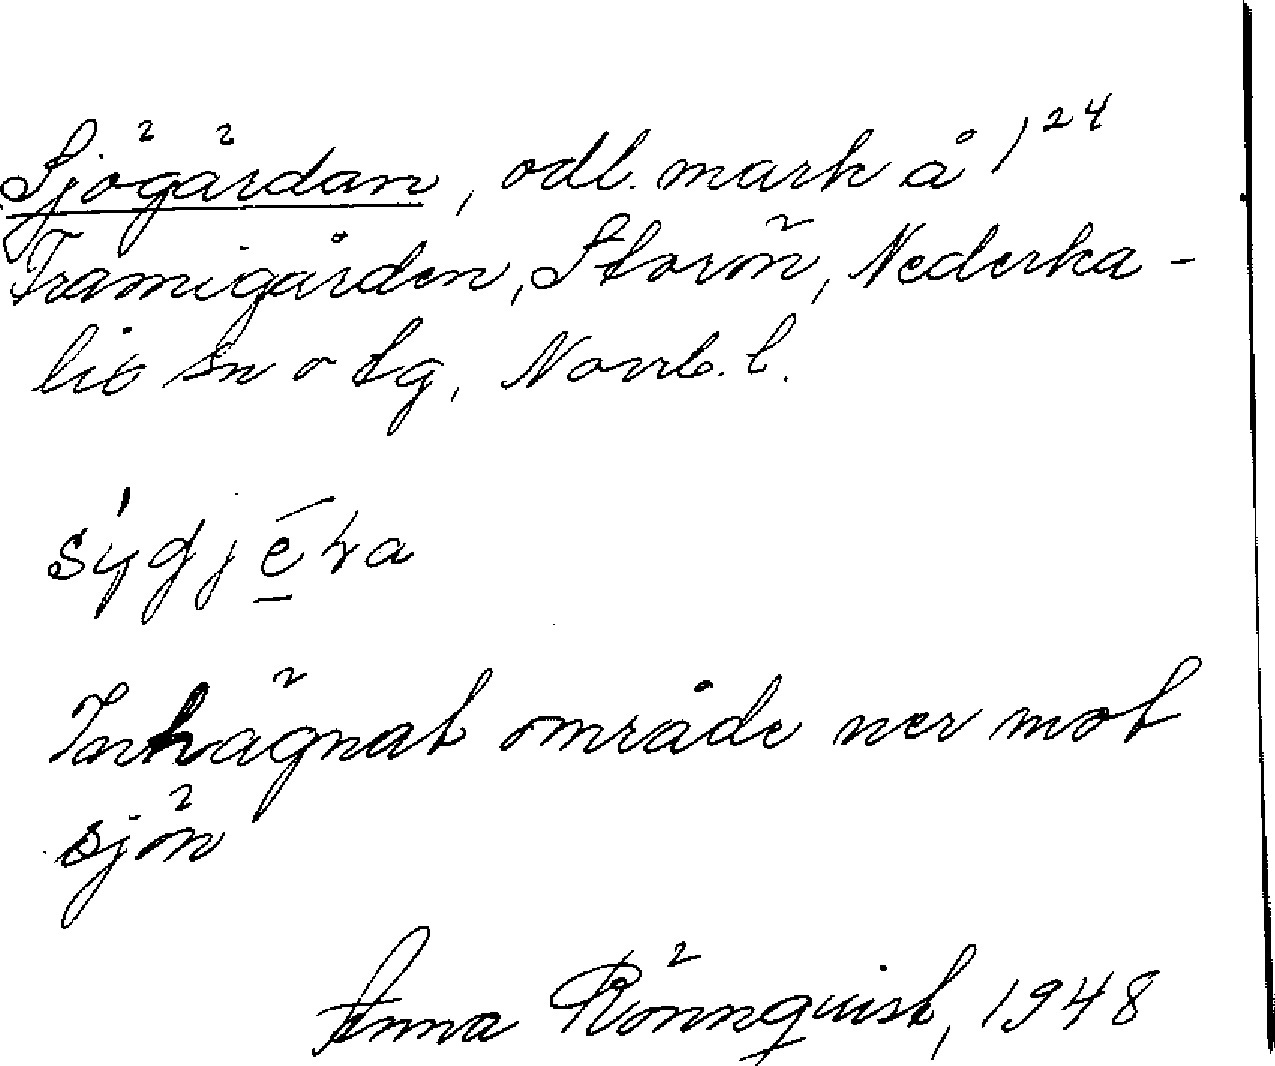 Sjögårdan, odl. mark å 1²⁴
Framigården, Storön, Nederka-
lix sn o tg, Norrb. l.
sýgjē̱ra
Inhägnat område ner mot
sjön
Anna Rönnquist, 1948